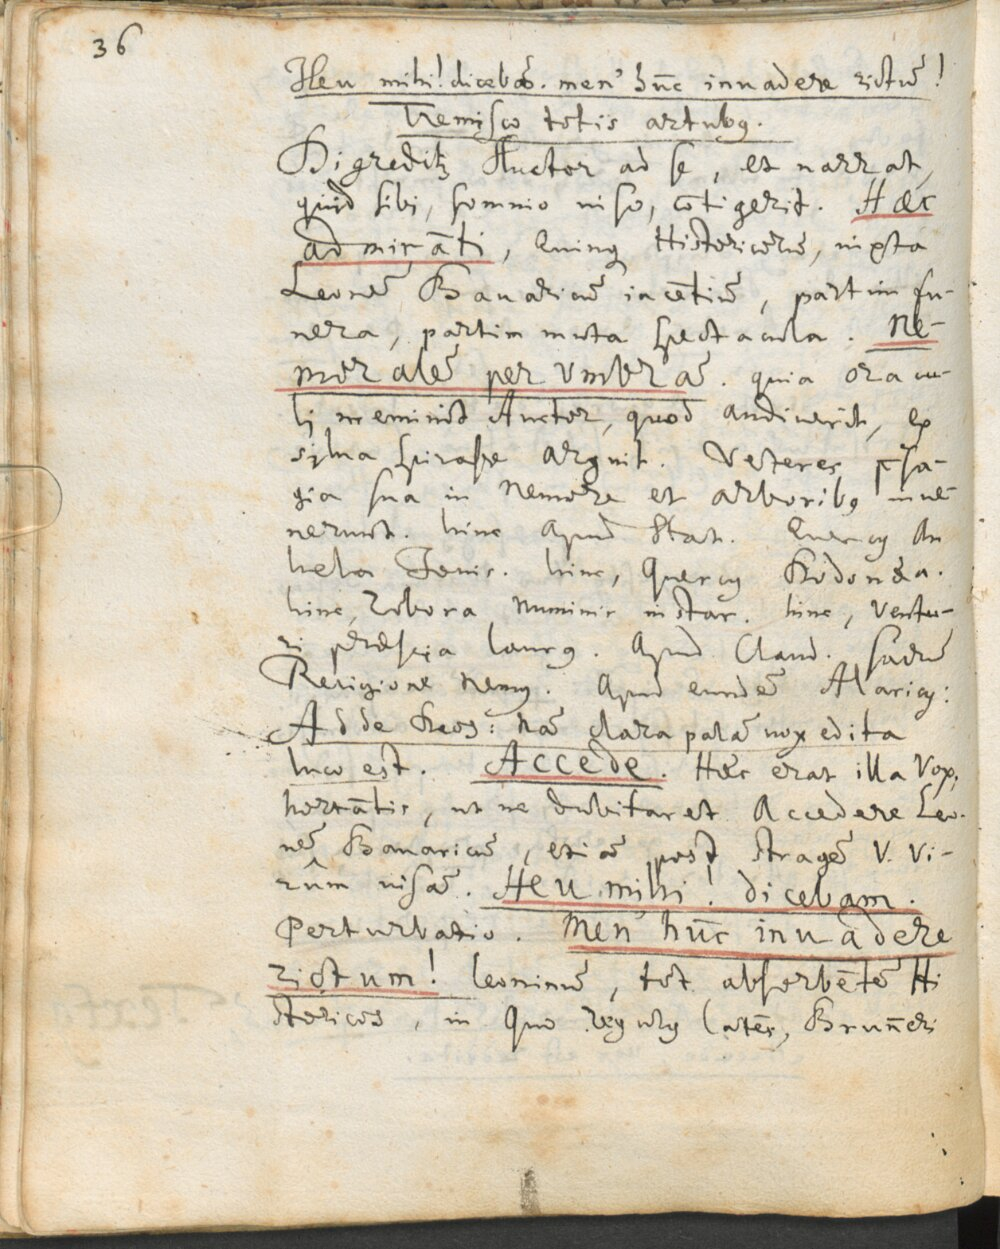 36
Heu mihi! dicebā. men' hūc inuadere rictū!
Tremisco totis artubꝯ.
Digreditꝛ Auctor ad se, et narrat,
quid sibi, somnio uiso, cōtigerit. Hæc
admirāti, Quinqꝫ Historicorū, iuxta
Leonē Bauaricū iacētiū, partim fu-
nera, partim muta spectacula. Ne-
moralē per Vmbrā. quia oracu-
lj meminit Auctor, quod audiuerit, ex
sylua spirasse arguit. Veteres pꝛsa-
gia sua in Nemore et arboribꝯ inue-
nerunt. hinc apud Stat. Quercꝯ An
hela Jouis. hinc, Quercꝯ Dodonæa.
hinc, Robora Numinis instar. hinc, Ventu-
ri præscia laurꝯ. Apud Claud. sacrū
Religione Nemꝯ. Apud eundē Alaricꝯ:
Adde Deos: Nā clara palā uox edita
luco est. Accede. Hæc erat illa Vox,
hortātis, ut ne dubitaret Accedere Leo-
nē Bauaricū, etiā post stragē V. Vi-
rûm uisā. Heu mihi! dicebam.
Perturbatio. Men' hūc inuadere
rictum! leoninū, tot absorbētē Hi
storicos, in Quo Regulꝯ latēs, Brun̄eri